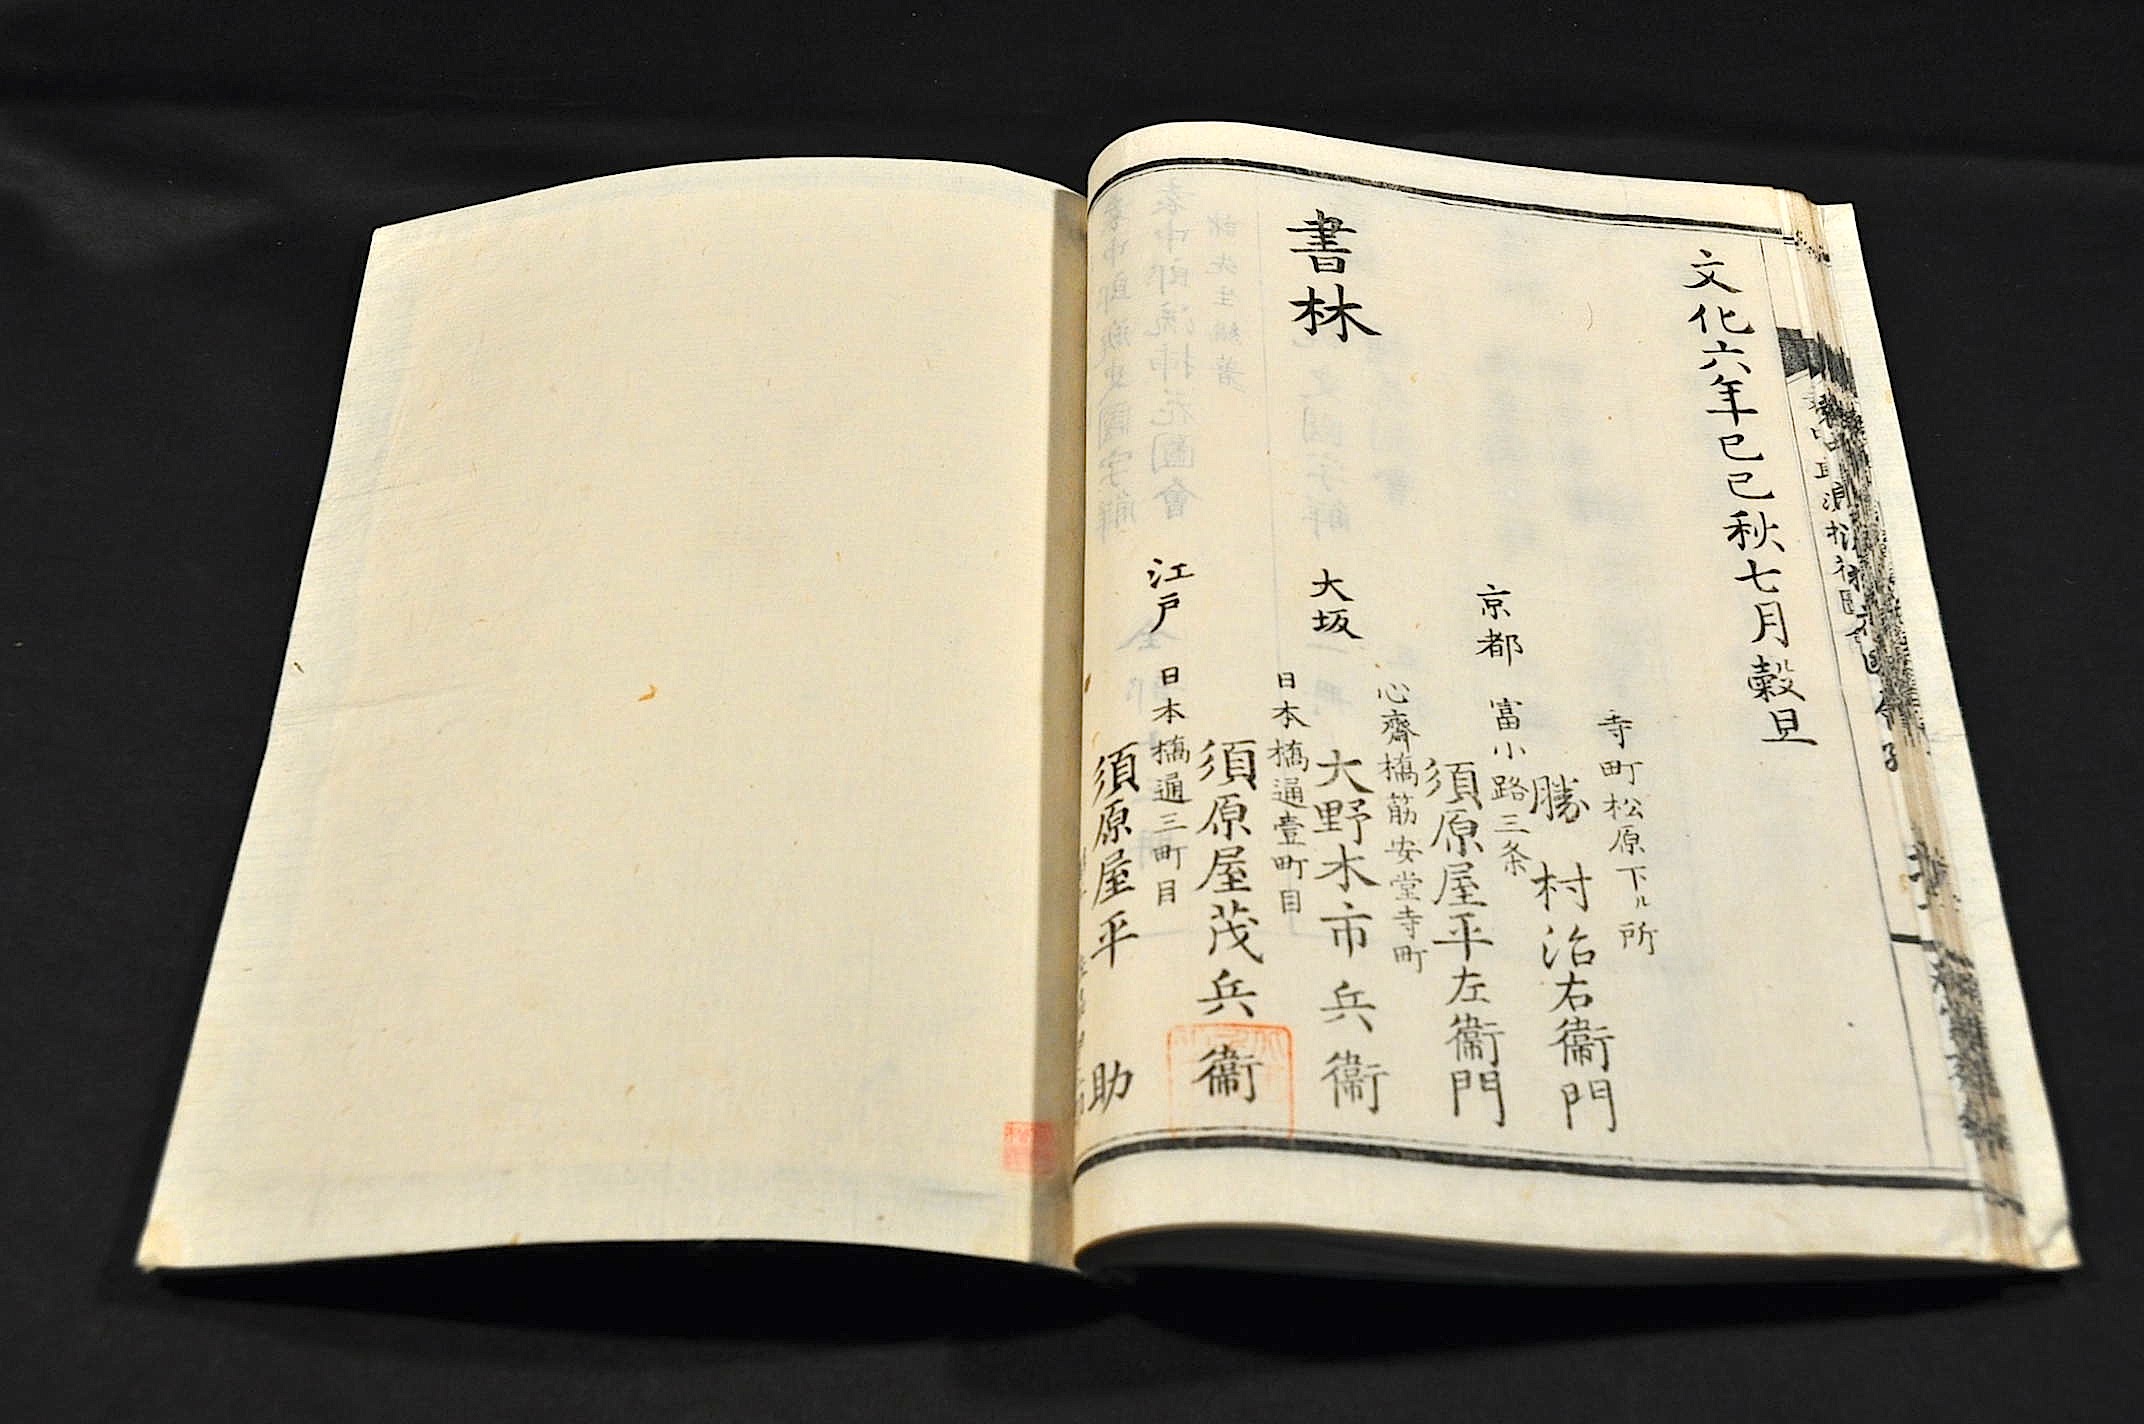 文化六年巳巳秋七月穀旦
書林
京都
寺町松原下ル所
勝村治右衞門
富小路三条
須原屋平左衞門
大坂
心齋橋筋安堂寺町
大野木市兵衞
江戸
日本橋通壹町目
須原屋茂兵衞
日本橋通三町目
須原屋平助